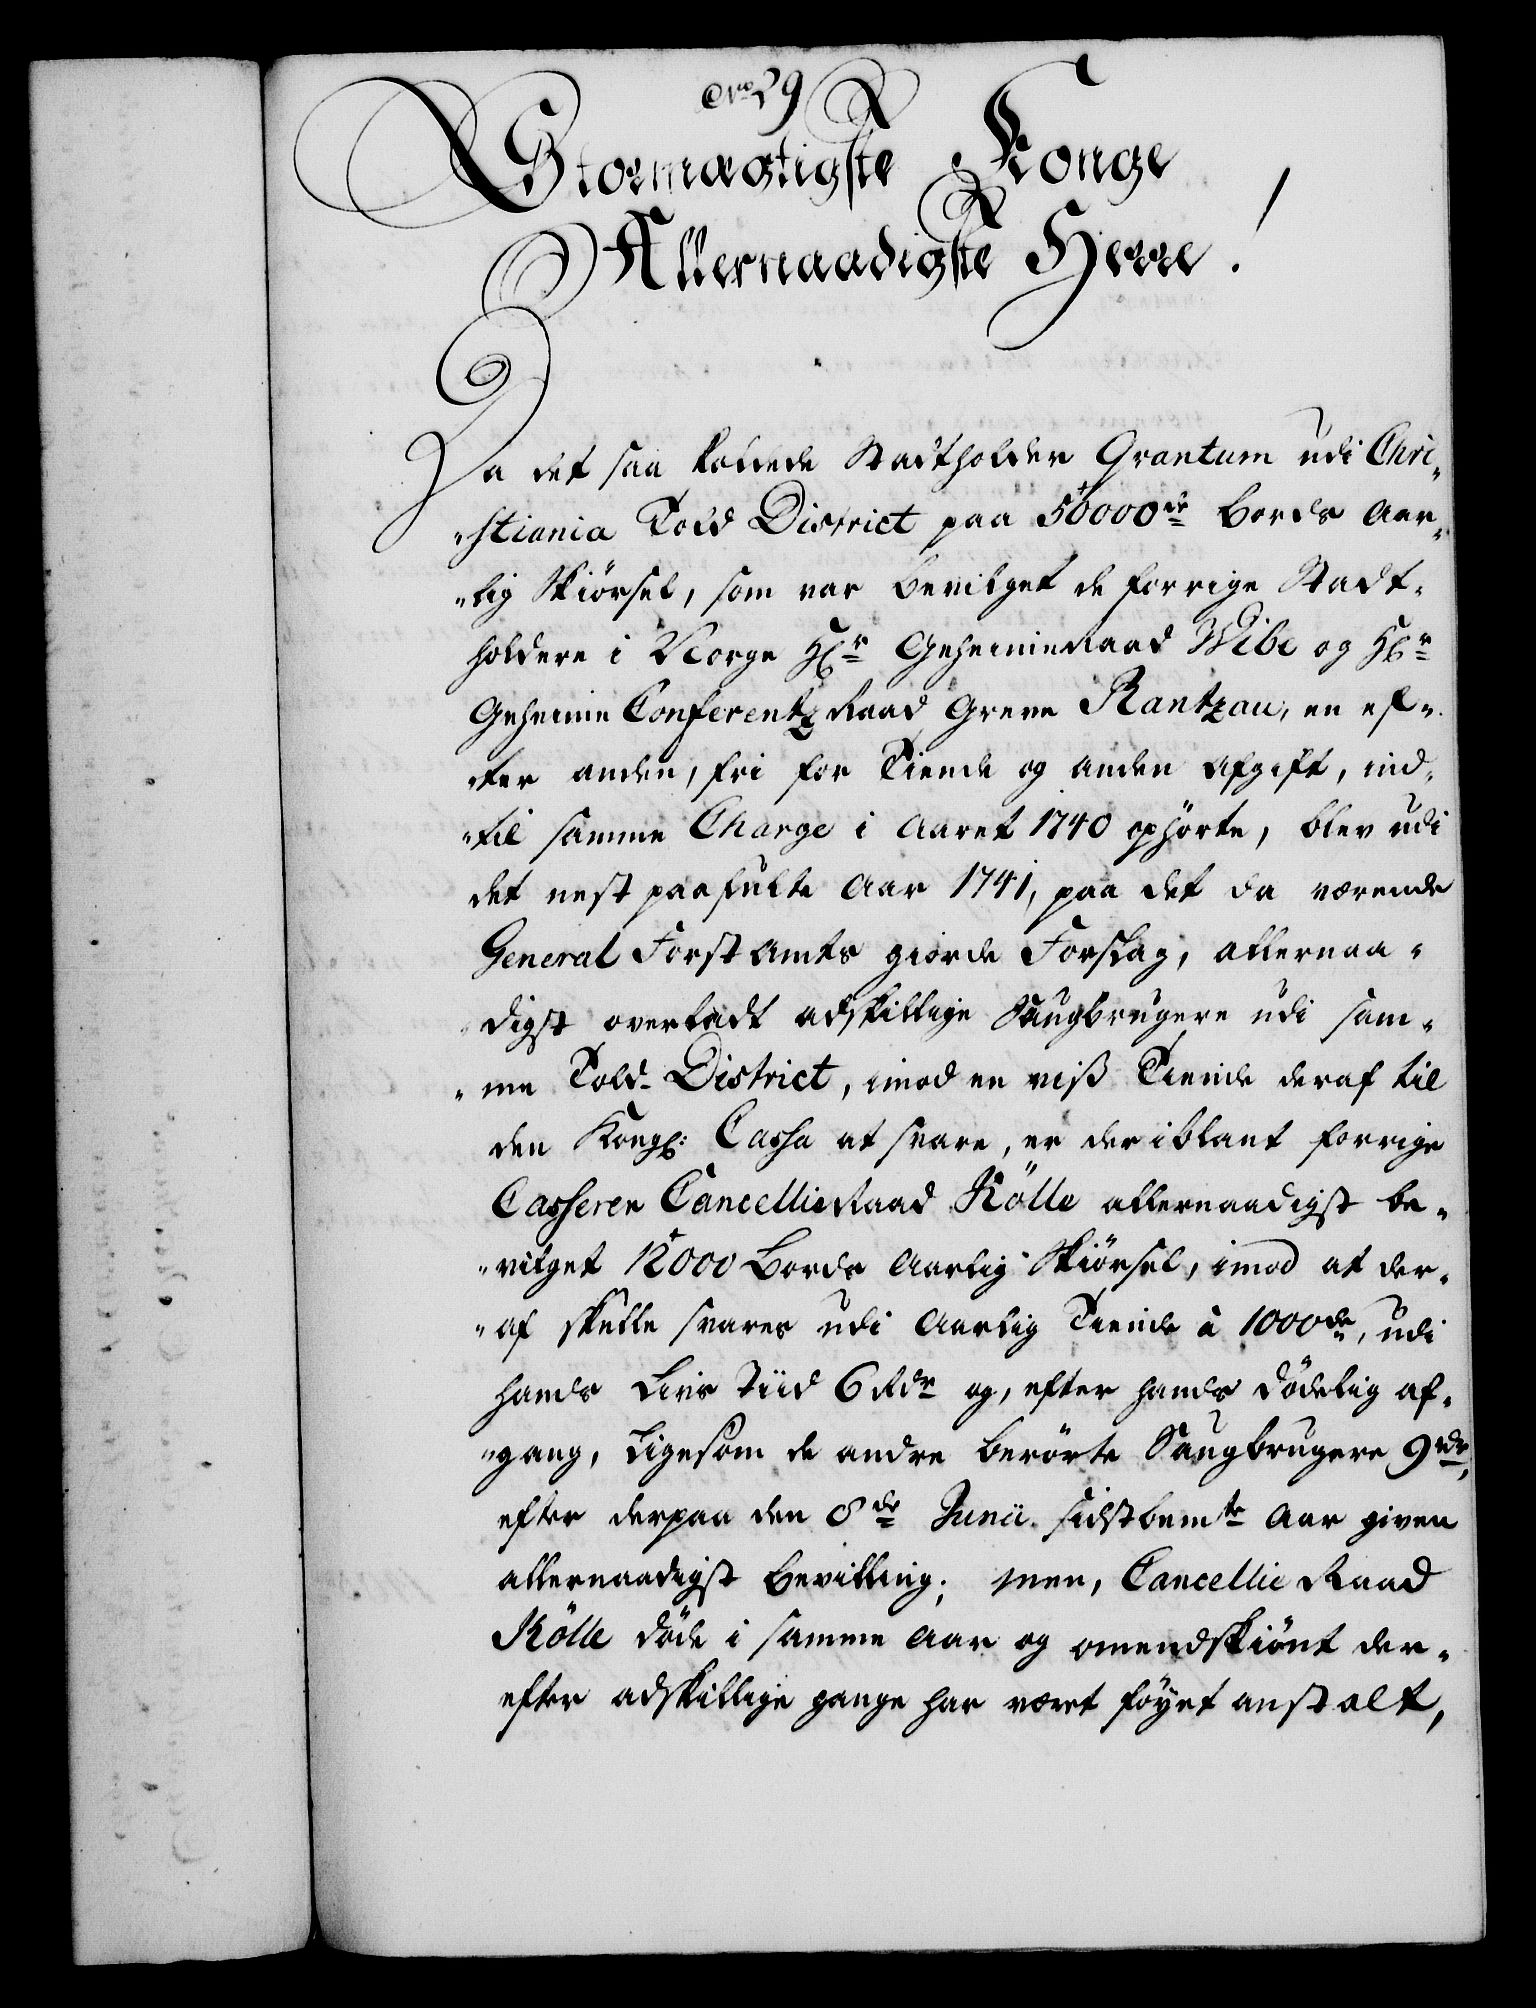 No 29
Stormægtigste Konge
Allernaadigste Herre!
Da det saa kaldede Stadtholder Qvantum udi Chri-
-stiania Told District paa 50000de Bords Aar-
-lig Skiørsel, som var bevilget de forrige Stadt-
holdere i Norge Hr GeheimeRaad Wibe og Hr
Geheime ConferentzRaad Greve Rantzau, en ef-
-ter anden, fri for Tiende og anden Afgift, ind-
-til samme Charge i Aaret 1740 ophörte, blev udi
det nest paafulte Aar 1741, paa det da værende
General ForstAmts giorde Forslag, allernaa-
digst overladt adskillige Saugbrugere udi sam-
-me Told-District, imod en viß Tiende deraf til
den Kongl: Cassa at svare, er der iblant forrige
Casserer CancellieRaad Kölle allernaadigst be-
-vilget 12000 Bords Aarlig Skiørsel, imod at der-
-af skulle svares udi Aarlig Tiende à 1000de, udi
hands Livs Tiid 6 Rdr og, efter hands dödelig af-
-gang, Ligesom de andre berörte Saugbrugere 9 rdr,
efter derpaa den 8de Junii sidstbemte Aar given
allernaadigst Bevilling; men, Cancellie Raad
Kölle döde i samme Aar og omendskiönt der-
efter adskillige gange har været föyet anstalt,